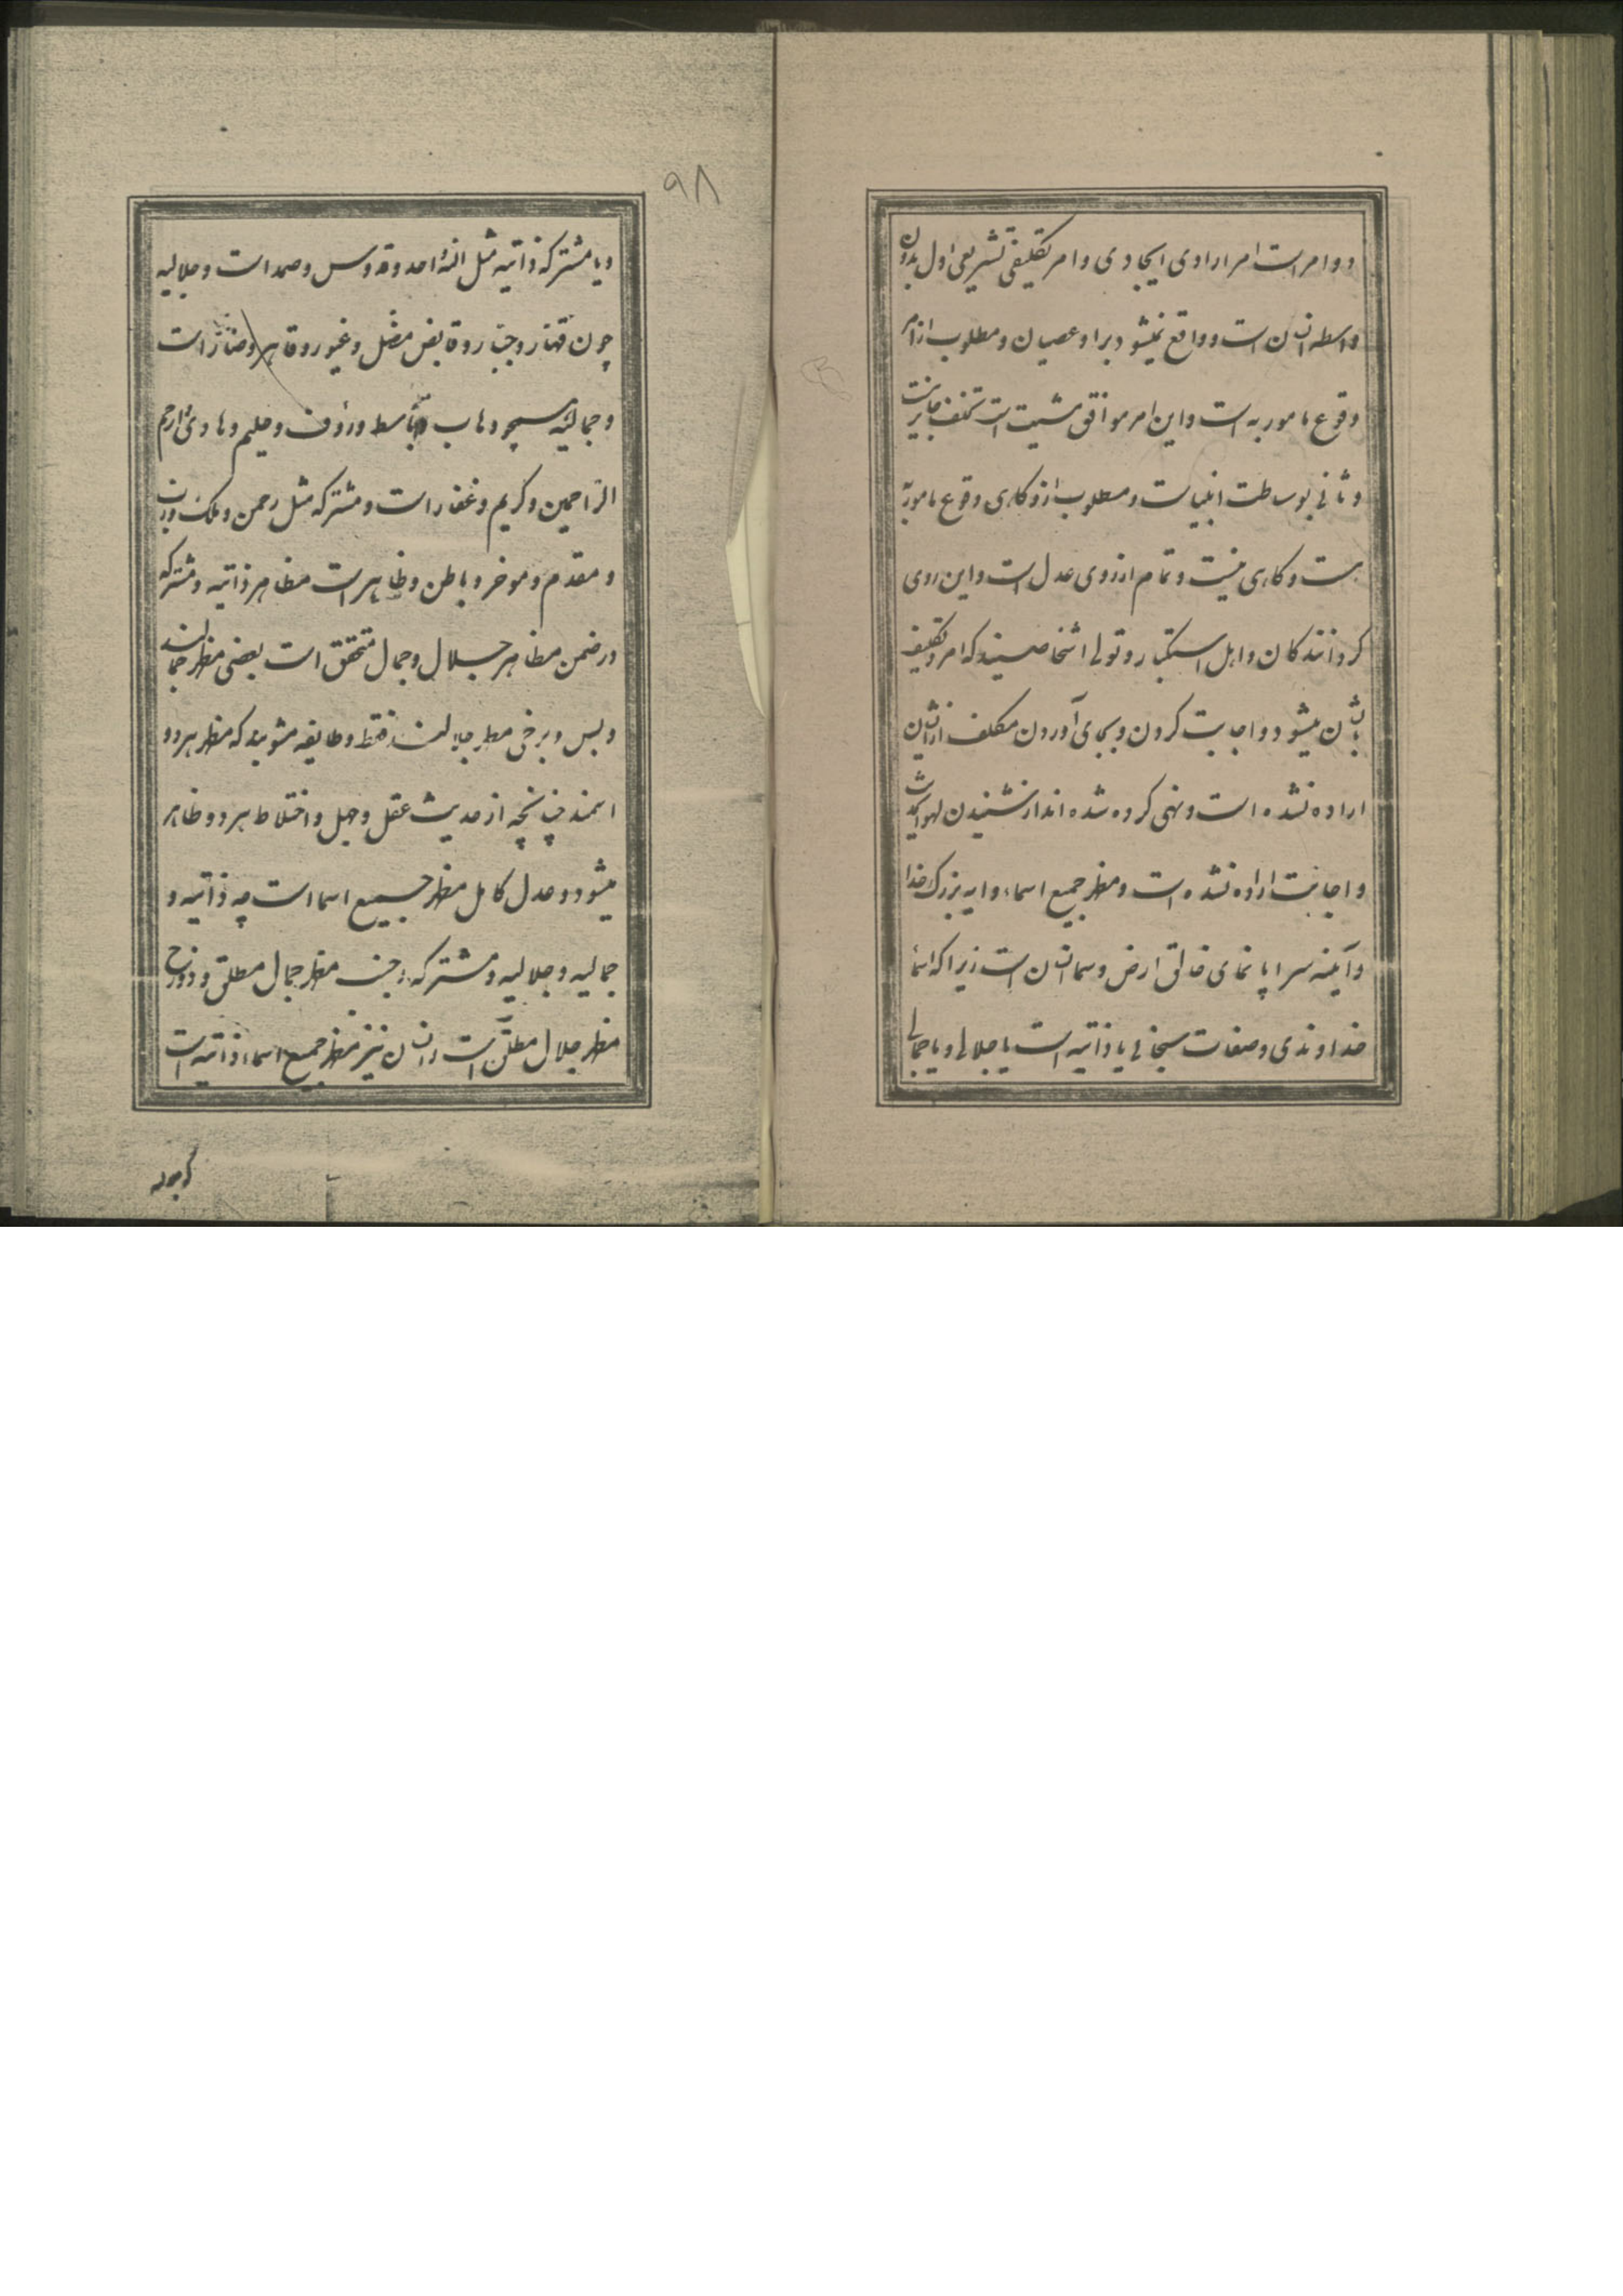 دو امر است امر ارادی ایجادی و امر تکلیفی تشریعی اول بدون
واسطه انسان است و واقع نمیشود بر او عصیان و مطلوب از امر
وقوع مامور به است و این امر موافق مشیت است تخلف جایز نیست
و ثانی بوساطت انبیاست و مطلوب ازو کاهی وقوع مامور به
است و کاهی نیست و تمام از روی عدل است و این روی
کردانند کان و اهل استکبار و تولی اشخاصیند که امر و تکلیف
بایشان میشود و اجابت کردن و بجای آوردن مکلف از ایشان
اراده نشده است و نهی کرده شده اند از شنیدن لهو الحدیث
و اجابت اراده نشده است و مظهر جمیع اسماء و ایه بزرک خدا
و آینه سراپا نمای خالق ارض و سما انسان است زیرا که اسماء
خداوندی و صفات سبحانی یا ذاتیه است یا جلالی و یا جمالی
۹۸
و یا مشترکه ذاتیه مثل الله احد و قدوس و صمد است و جلالیه
چون قهار و جبار و قابض مضل و غیور و قاهر و ضار است
و جمالیه و هاب باسط و رؤف و حلیم و هادی ارحم
الراحمین و کریم و غفار است و مشترکه مثل رحمن و ملک و رب
و مقدم و موخر و باطن و ظاهر است مظاهر ذاتیه و مشترکه
در ضمن مظاهر جلال و جمال متحقق است بعضی مظهر جمالند
و بس و برخی مظهر جلالند فقط و طایفه مشوبند که مظهر هر دو
اسمند چنانچه از حدیث عقل و جهل و اختلاط هر دو ظاهر
میشود و عدل کامل مظهر جمیع اسما است چه ذاتیه و
جمالیه و جلالیه و مشترکه جنت مظهر جمال مطلق و دوزخ
مظهر جلال مطلق است و انسان نیز مظهر جمیع اسماء ذاتیه است